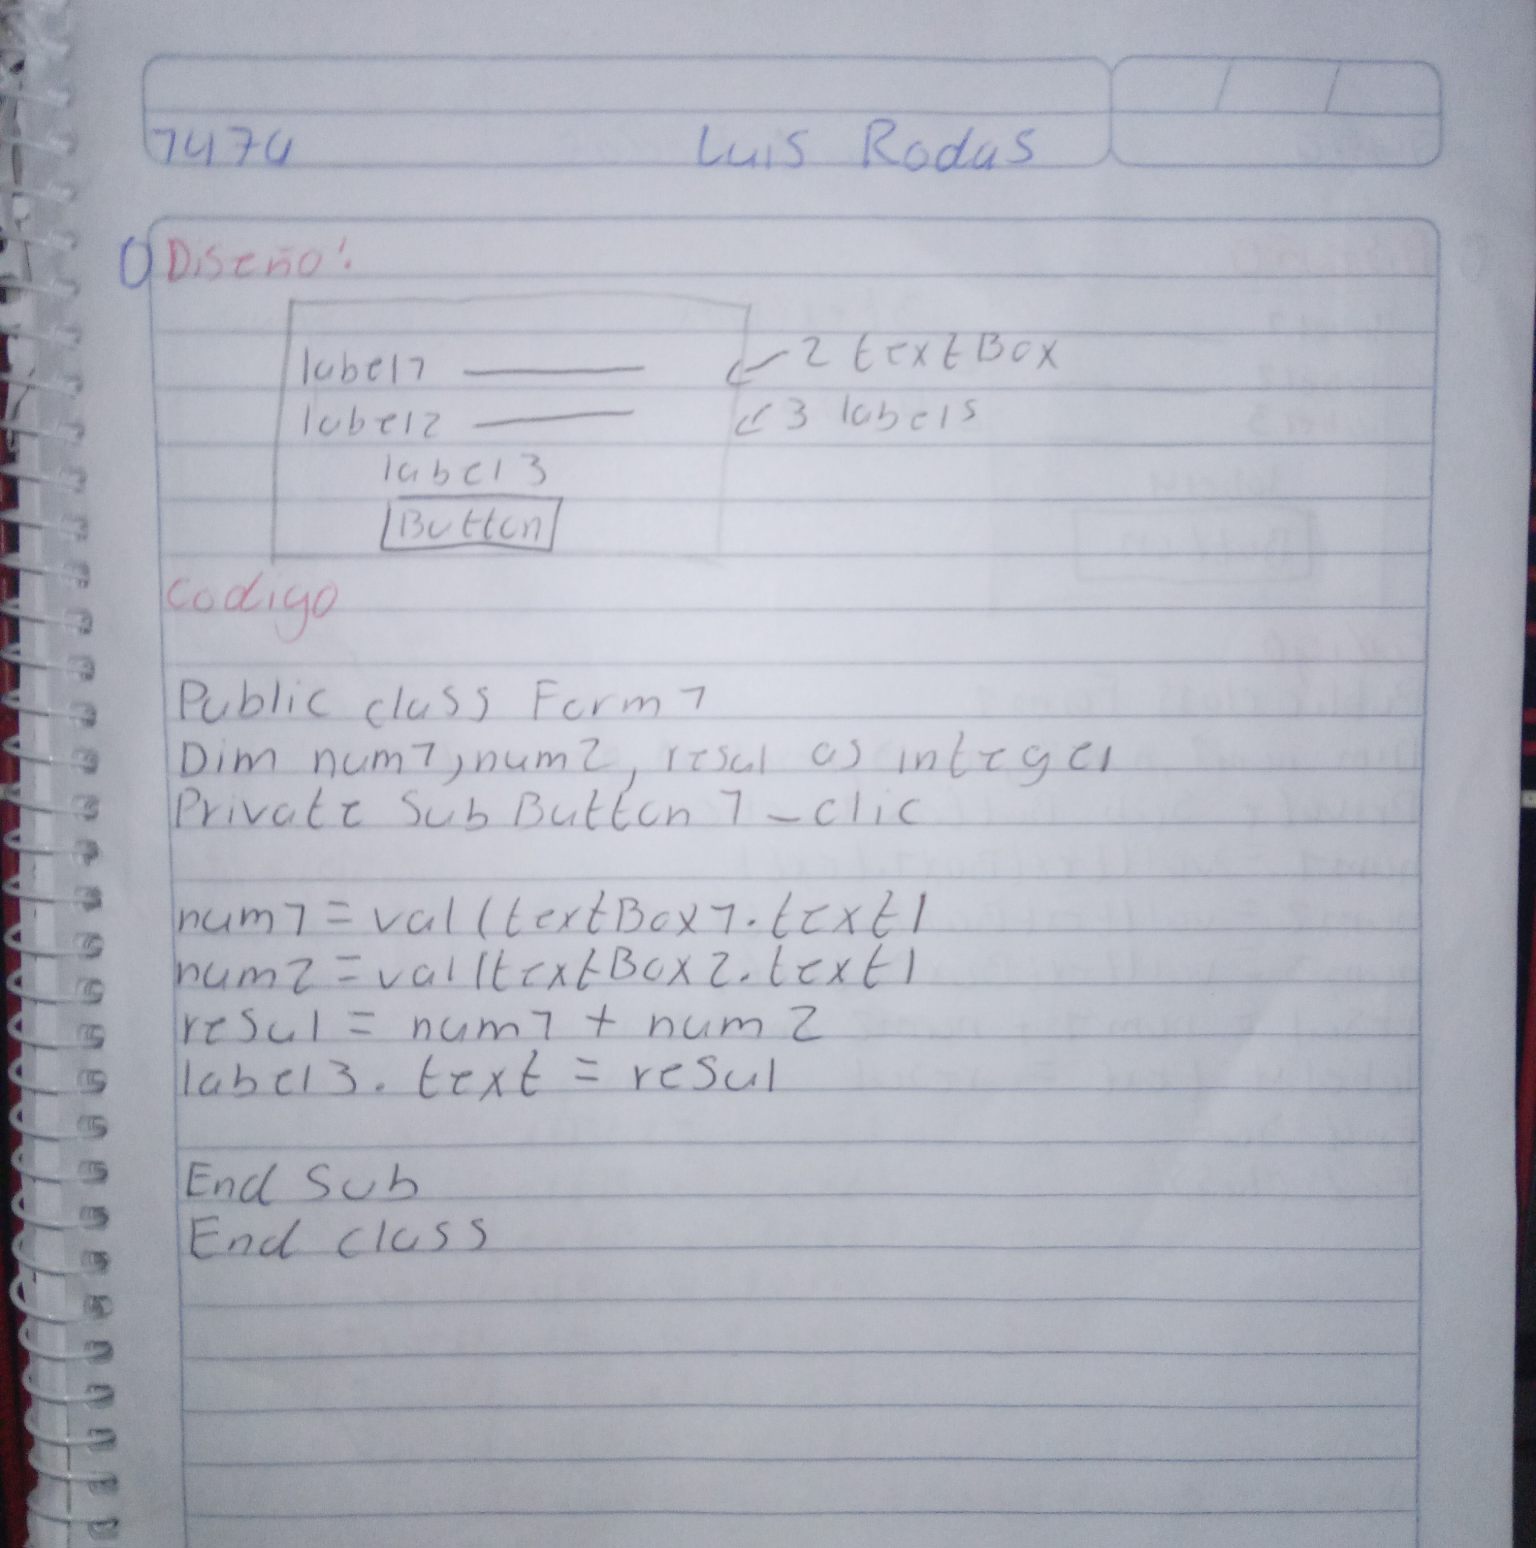 1474 Luis Rodas
Diseño:
label1 2 textBox
label2 3 labels
label3
Button
Codigo
Public class Form1
Dim num1, num2, resul as integer
Private Sub Button1_clic
num1 = val(textBox1.text)
num2 = val(textBox2.text)
resul = num1 + num2
label3.text = resul
End Sub
End class